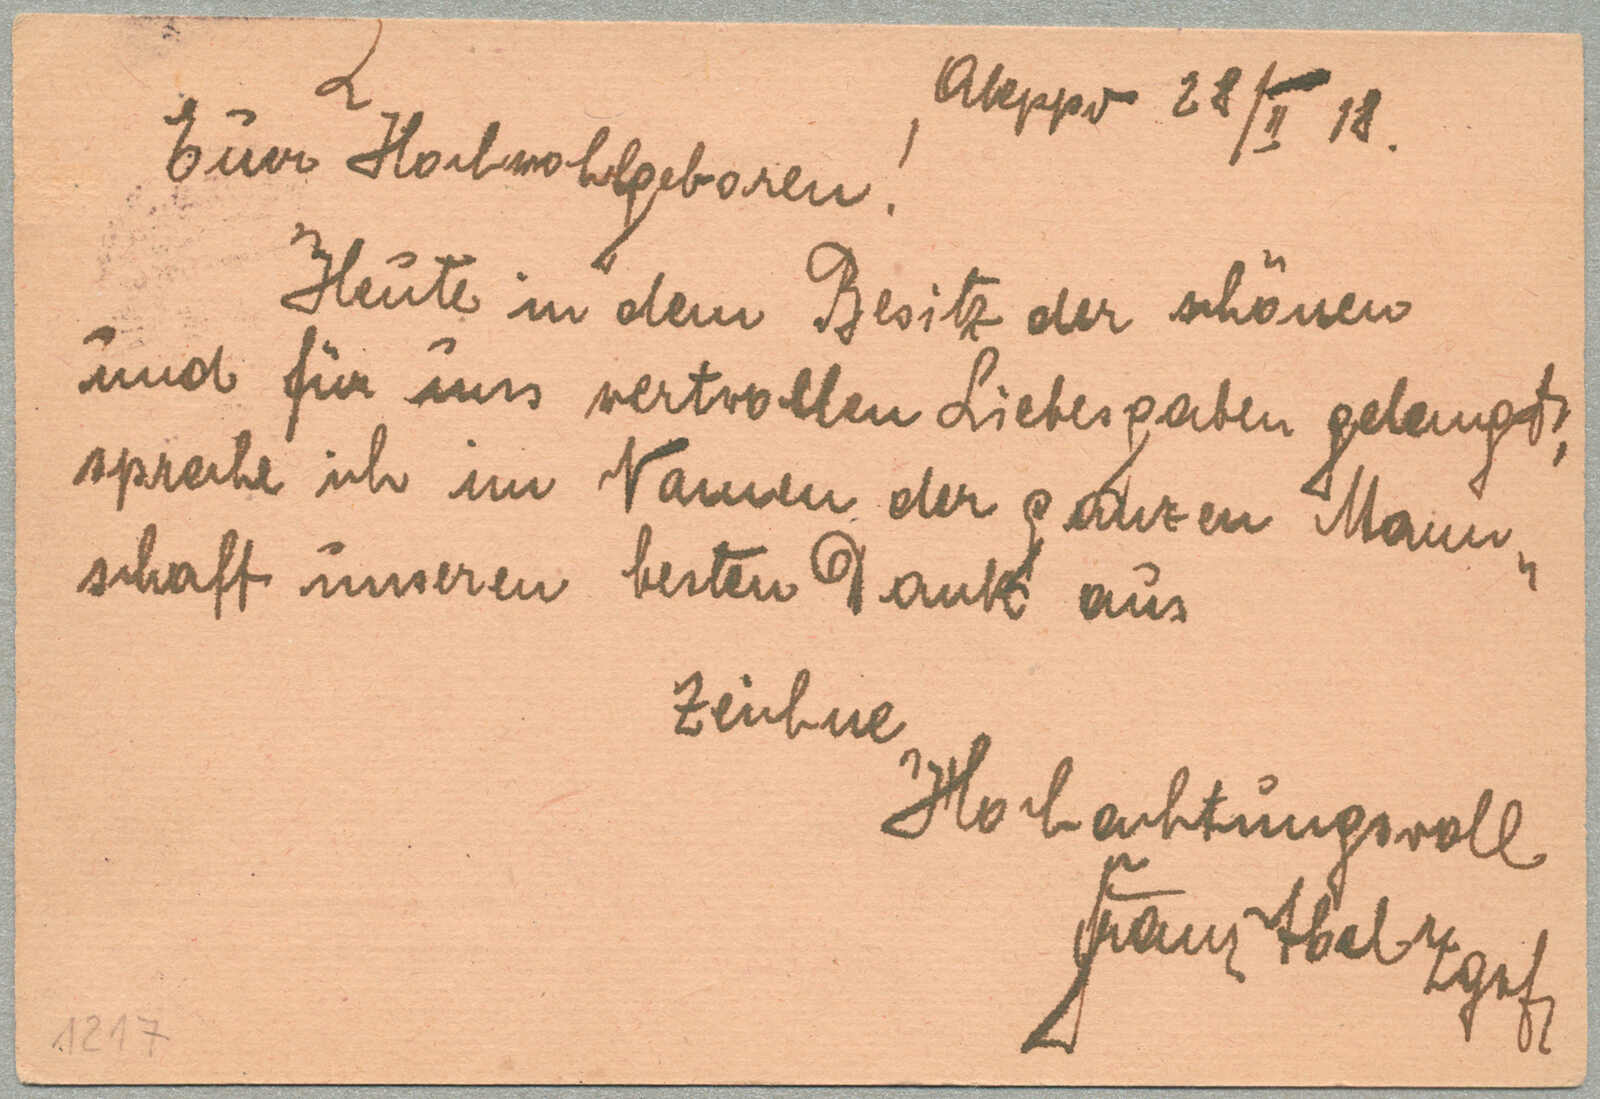 Aleppo 28/II 18.
Euer Hochwohlgeboren!
Heute in dem Besitz der schönen
und für uns wertvollen Liebesgaben gelangt,
spreche ich im Namen der ganzen Mann„
schaft unseren besten Dank aus
Zeichne
Hochachtungsvoll
Franz Abel Zgsf
1217